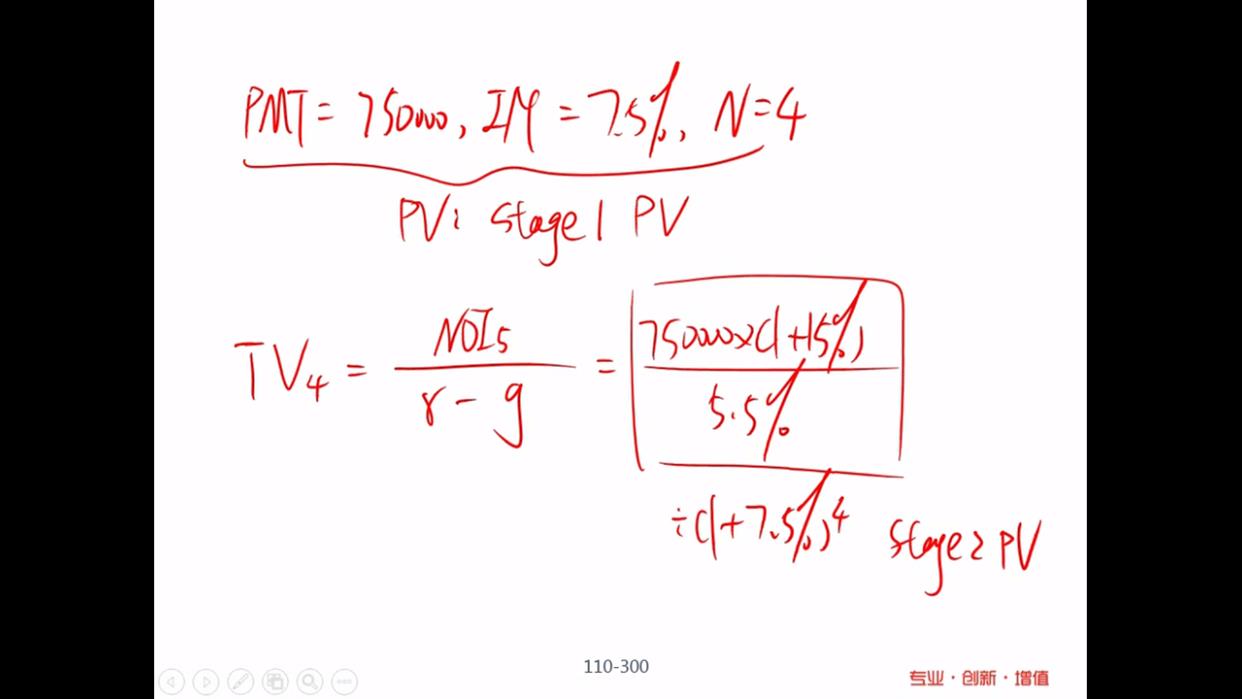 PMT = 750000, I/Y = 7.5%, N=4
PV: stage 1 PV
TV₄ = NOI₅ / r - g = 750000×(1+15%) / 5.5%
÷(1+7.5%)⁴ stage 2 PV
110-300
专业·创新·增值